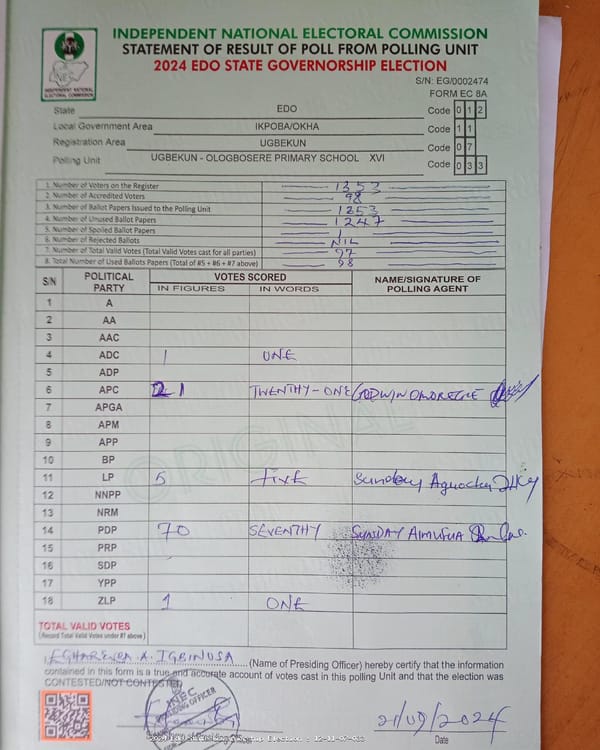 INDEPENDENT NATIONAL ELECTORAL COMMISSION
STATEMENT OF RESULT OF POLL FROM POLLING UNIT
2024 EDO STATE GOVERNORSHIP ELECTION
INDEPENDENT NATIONAL ELECTORAL COMMISSION
S/N: EG/0002474
FORM EC 8A
State EDO Code 0 1 2
Local Government Area IKPOBA/OKHA Code 1 1
Registration Area UGBEKUN Code 0 7
Polling Unit UGBEKUN - OLOGBOSERE PRIMARY SCHOOL XVI Code 0 3 3
1. Number of Voters on the Register 1353
2. Number of Accredited Voters 98
3. Number of Ballot Papers Issued to the Polling Unit 1353
4. Number of Unused Ballot Papers 1247
5. Number of Spoiled Ballot Papers 1
6. Number of Rejected Ballots NIL
7. Number of Total Valid Votes (Total Valid Votes cast for all parties) 97
8. Total Number of Used Ballots Papers (Total of #5 + #6 + #7 above) 98
S/N POLITICAL PARTY VOTES SCORED NAME/SIGNATURE OF POLLING AGENT
IN FIGURES IN WORDS
1 A
2 AA
3 AAC
4 ADC 1 ONE
5 ADP
6 APC 21 TWENTHY-ONE GODWIN
7 APGA
8 APM
9 APP
10 BP
11 LP 5 FIVE Sunday
12 NNPP
13 NRM
14 PDP 70 SEVENTHY SUNDAY
15 PRP
16 SDP
17 YPP
18 ZLP 1 ONE
ORIGINAL
TOTAL VALID VOTES
(Record Total Valid Votes under #7 above)
I, EGHAREVBA A. IGBINOSA (Name of Presiding Officer) hereby certify that the information
contained in this form is a true and accurate account of votes cast in this polling Unit and that the election was
CONTESTED/NOT CONTESTED
INEC
PRESIDING OFFICER
21/09/2024
Date